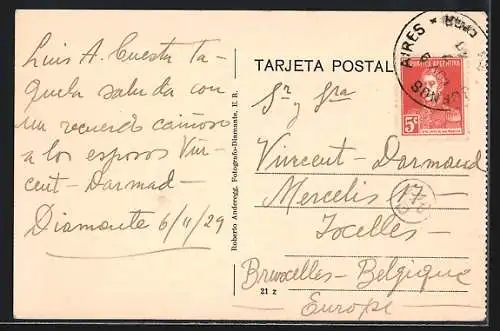 Luis A. Cuesta Ta-
quela saluda con
un recuerdo cariñoso
a los esposos Vin-
cent-Darmad-
Diamante 6/11/29
Roberto Anderegg. Fotografo-Diamante, E. R.
TARJETA POSTAL
Sr y Sra
Vincent-Darmand
Mercelis -
Ixelles -
Bruxelles - Belgique
- Europe -
21 z
AIRES
BUENOS
REPUBLICA ARGENTINA
5c
17